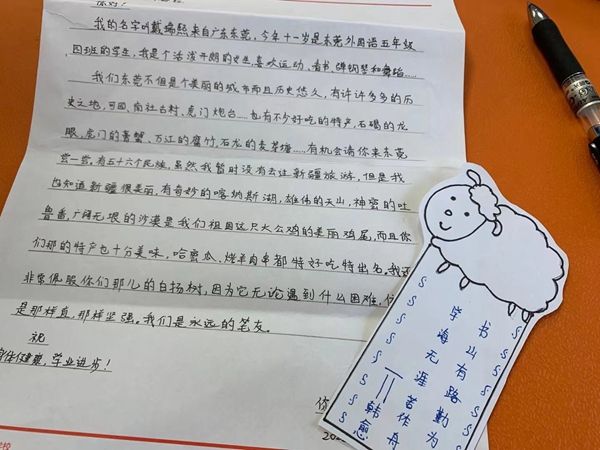 你好！
我的名字叫戴瑞熙,来自广东东莞，今年十一岁是东莞外国语五年级
四班的学生，我是个活泼开朗的女生,喜欢运动、看书、弹钢琴和舞蹈……
我们东莞不但是个美丽的城市而且历史悠久，有许许多多的历
史之地,可园、南社古村、虎门炮台……也有不少好吃的特产,石碣的龙
眼、虎门的膏蟹、万江的腐竹、石龙的麦芽糖……有机会请你来东莞
尝一尝,有五十六个民族,虽然我暂时没有去过新疆旅游，但是我
也知道新疆很美丽，有奇妙的喀纳斯湖，雄伟的天山，神密的吐
鲁番,广阔无垠的沙漠是我们祖国这只大公鸡的美丽鸡尾,而且你
们那的特产也十分美味，哈密瓜、烤羊肉串都特好吃特出名。我还
非常佩服你们那儿的白杨树,因为它无论遇到什么困难,
是那样直,那样坚强。我们是永远的笔友。
祝
身体健康，学业进步！
书山有路勤为
学海无涯苦作舟
——韩愈